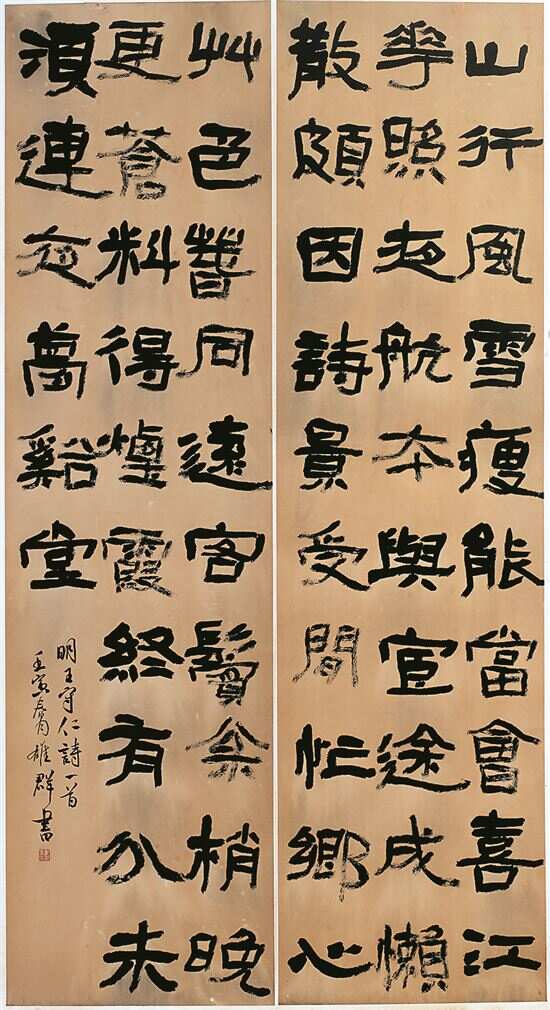 山行風雪瘦能當會喜江
華照夜航本與宦途成懶
散頗因詩景受間忙鄉心
艸色萅同遠客鬢枩梢晚
更蒼料得煙霞終有分未
須連夜夢谿堂
明王守仁詩一首
壬寅春月雄群書